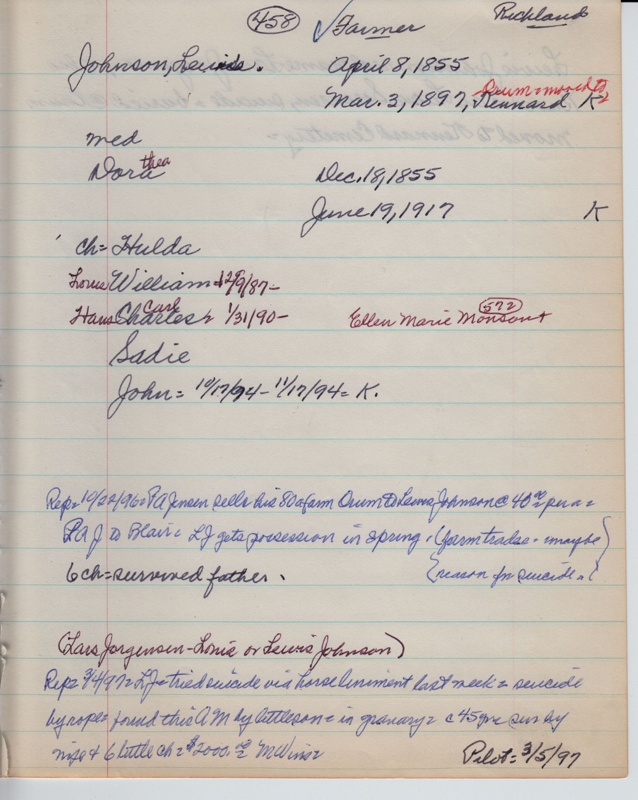 458 ✓ Farmer Richland
Johnson, Lewis. April 8, 1855
Drum = moved to
Mar. 3, 1897, Kennard K
med
Dorathea Dec. 18, 1855
June 19, 1917 K
ch = Hulda
Louie William = 12/9/87 -
Hans Charles Carl = 1/31/90 - Ellen Marie Monson + 572
Sadie
John = 10/17/94 - 11/17/94 = K.
Rep = 10/22/96 = PA Jensen sells his 80a farm Orum to Lewis Johnson @ 40.00 per a =
PAJ to Blair = LJ gets possession in spring. (farm trades - maybe
6 ch = survived father. reason for suicide.)
(Lars Jorgensen - Louie or Lewis Johnson)
Rep = 3/4/97 = LJ = tried suicide via horse liniment last week = suicide
by rope = found this AM by little son = in granary = c 45 yrs sur by
wife & 6 little ch = $2000.00 M Wins
Pilot = 3/5/97